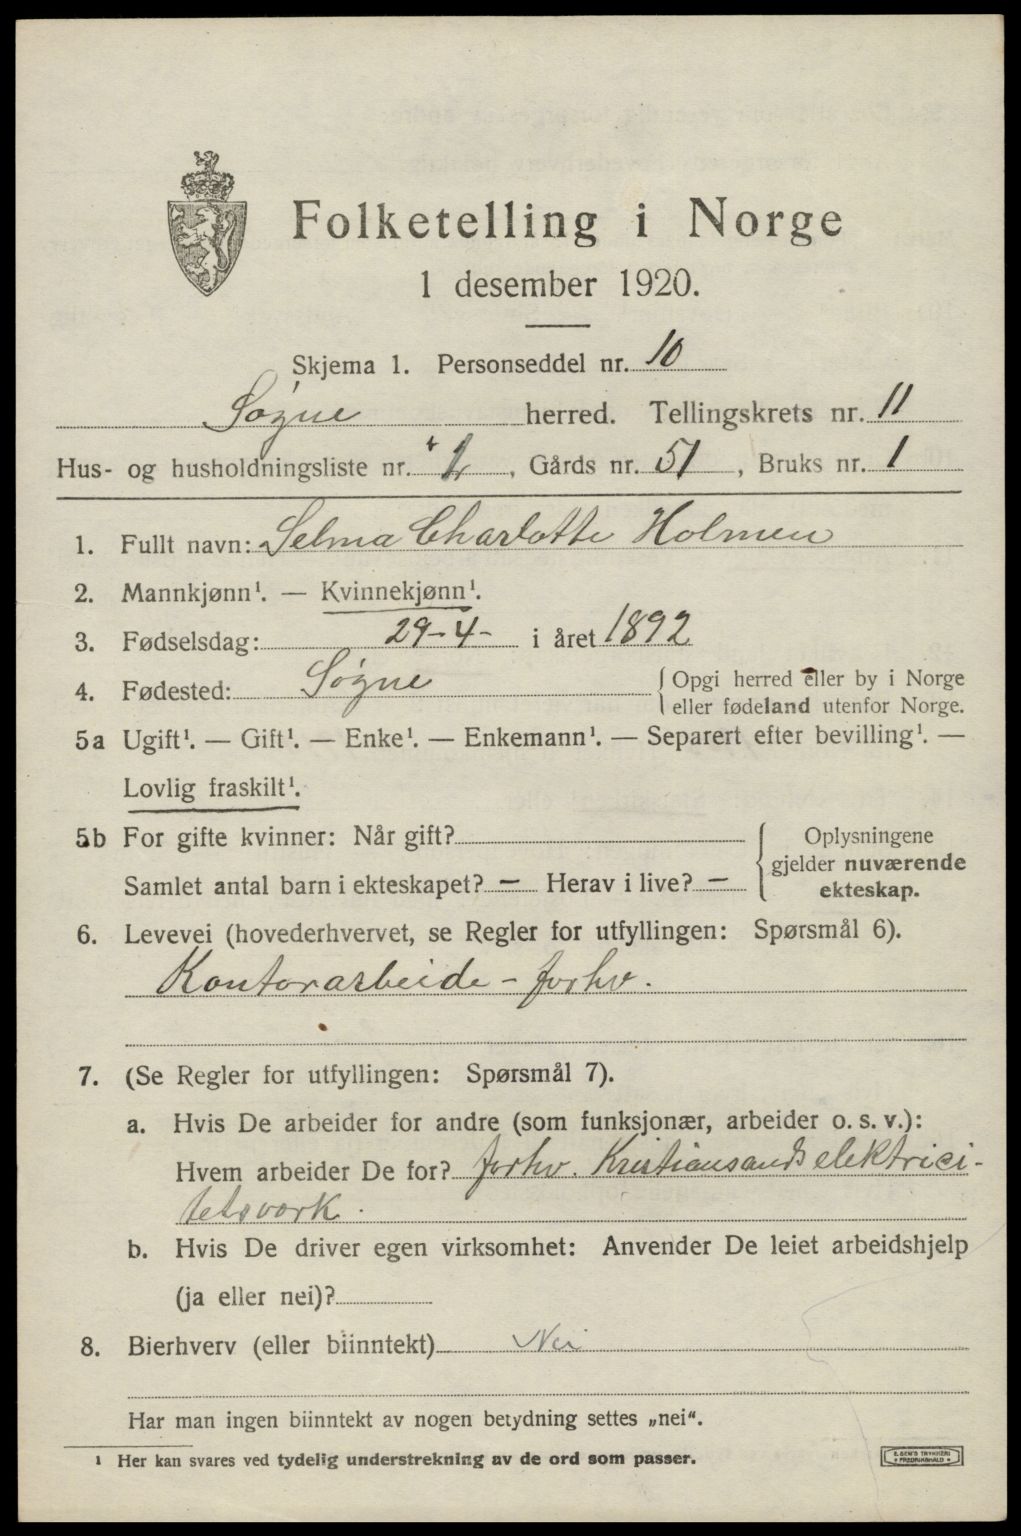 Folketelling i Norge
1 desember 1920.
Skjema 1. Personseddel nr. 10
Søgne herred. Tellingskrets nr. 11
Hus- og husholdningsliste nr. , Gårds nr. 51 , Bruks nr. 1
1. Fullt navn: Selma Charlotte Holmen
2. Mannkjønn¹. — Kvinnekjønn¹.
3. Fødselsdag: 29-4- i året 1892
4. Fødested: Søgne { Opgi herred eller by i Norge
eller fødeland utenfor Norge.
5a Ugift¹. — Gift¹. — Enke¹. — Enkemann¹. — Separert efter bevilling¹. —
Lovlig fraskilt¹.
5b For gifte kvinner: Når gift? { Oplysningene
gjelder nuværende
Samlet antal barn i ekteskapet? — Herav i live? — ekteskap.
6. Levevei (hovederhvervet, se Regler for utfyllingen: Spørsmål 6).
Kontorarbeide - forhv.
7. (Se Regler for utfyllingen: Spørsmål 7).
a. Hvis De arbeider for andre (som funksjonær, arbeider o. s. v.):
Hvem arbeider De for? forhv. Kristiansands elektrici-
tetsverk.
b. Hvis De driver egen virksomhet: Anvender De leiet arbeidshjelp
(ja eller nei)?
8. Bierhverv (eller biinntekt) Nei
Har man ingen biinntekt av nogen betydning settes „nei“.
¹ Her kan svares ved tydelig understrekning av de ord som passer.
E. SEM'S TRYKKERI
FREDRIKSHALD